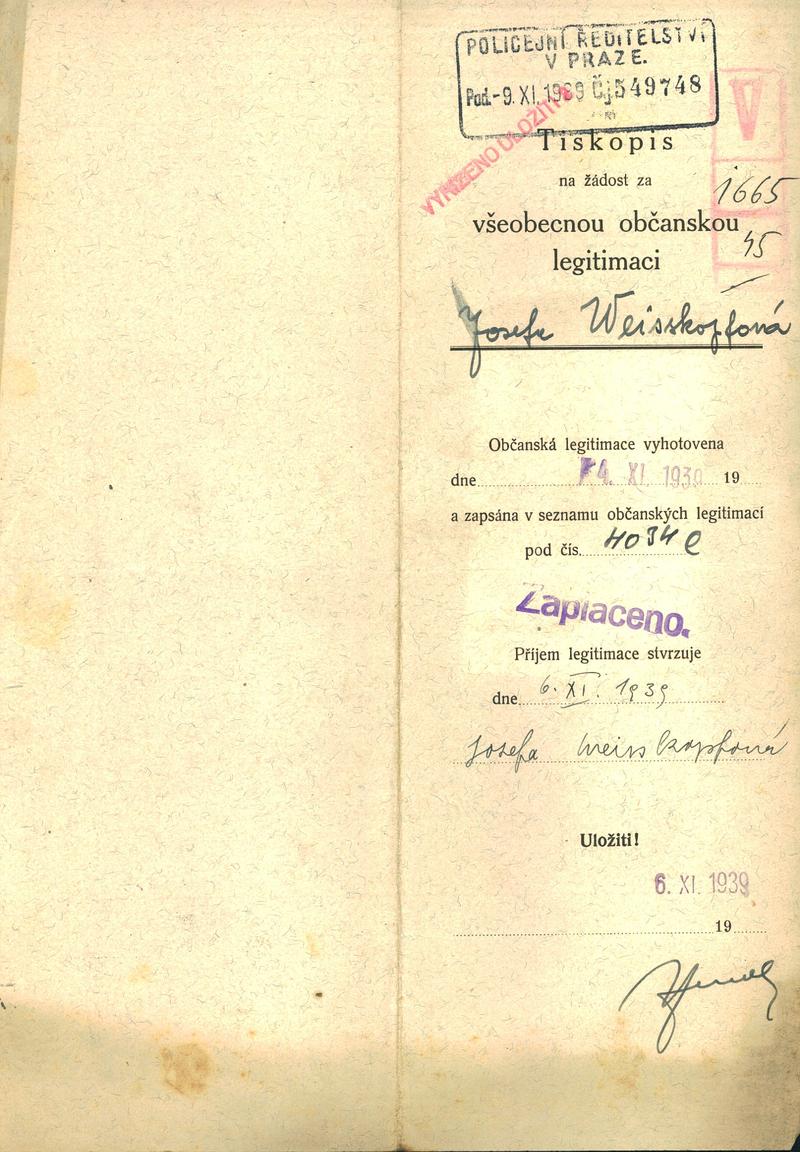 POLICEJNÍ ŘEDITELSTVÍ
V PRAZE.
Pod. -9. XI. 1939 Čj 549748
VYŘÍZENO ULOŽITI
V
Tiskopis
na žádost za
1665
všeobecnou občanskou
45
legitimaci
Josefa Weisskopfová
Občanská legitimace vyhotovena
dne 4. XI. 1939 19
a zapsána v seznamu občanských legitimací
pod čís. 4034
Zaplaceno.
Příjem legitimace stvrzuje
dne 6. XI. 1939
Josefa Weisskopfová
Uložiti!
6. XI. 1939
19